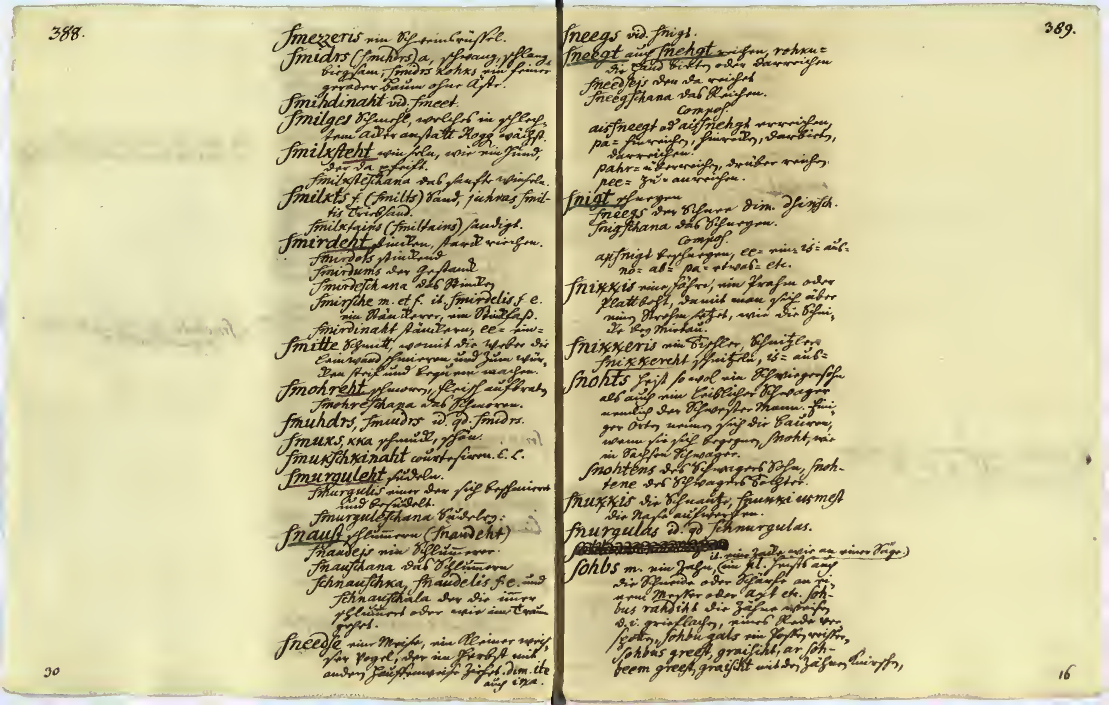 388.
smezzeris ein Schweinsrüssel.
smidrs (smihdrs) a, schwang, schlang,
biegsam, smidrs kohks ein feiner
gerader Baum ohne Äste.
smihdinaht vid. smeet.
smilges Schmehl, welches in schlech-
tem Acker anstatt Rogg wächst.
smilksteht winseln, wie ein Hund,
der da
smilksteschana das sanfte winseln.
smilkts f. (smilts) Sand, juhras smil-
tis Triebsand.
smilktains (smiltains) sandigt.
smirdeht stincken, starck riechen.
smirdots stinckend
smirdums der Gestanck
smirdeschana das Stincken
smirsche m. et f. it. smirdelis f. e.
ein Stänckerer, ein Stinckfaß.
smirdinaht stänckern, ee= ein=
smitte Schmitt, womit die Weber die
Leinwand schmieren und zum wür-
cken steif und bequem machen.
smohreht schmoren, Fleisch aufbraten
smohreschana das Schmoren.
smuhdrs, smudrs id. qd. smidrs.
smuks, kka schmuck, schön.
smukschkinaht courtesiren. L. L.
smurguleht sudeln.
smurgulis einer der sich beschmieret
und besudelt.
smurguleschana Sudeley.
snaust schlummern (snaudeht)
snaudejs ein Schlummerer.
snauschana das Schlummern
schnauschka, snaudelis f. e. und
schnauschala der da immer
schlummert oder wie im Traum
gehet.
sneedse eine Meise, ein kleiner weis-
ser Vogel, der im Herbst mit
andern Hauffenweise ziehet. Dim. ite
auch
30
389.
sneegs vid. snigt.
sneegt auch snehgt reichen,
die Hand bieten oder darreichen
sneedsejs der da reichet
sneegschana das Reichen.
Compos.
aissneegt od aissnehgt erreichen,
pa= hinreichen, darbieten,
darreichen.
pahr= überreichen, drüber reichen.
pee= zu= anreichen.
snigt schneyen
sneegs der Schnee Dim. dsinsch.
snigschana das Schneyen.
Compos.
apsnigt beschneyen, ee= ein= is= aus=
no= ab= pa= etwas= etc.
snikkis eine Fähre, ein Prahm oder
Plattboht, damit man sich über
einen Strohm setzet, wie die Schni-
cke bey Mietau.
snikkeris ein Tischler, Schnitzler
snikkereht schnitzeln, is= aus=
snohts heist so wol ein Schwiegersohn
als auch ein leiblicher Schwager
nemlich der Schwester Mann. Eini-
ger Orten nennen sich die Bauren,
wenn sie sich begegnen, snoht, wie
in Sachsen Schwager.
snohtens des Schwagers Sohn, snoh-
tene des Schwagers Tochter.
snukkis die Schnautze, snukki usmest
die Nase aufwerfen.
snurgulas id qd schnurgulas.
it. eine Zacke wie an einer Säge)
sohbs m. ein Zahn, (im pl. heists auch
die Schneide oder Schärfe an ei-
nem Messer oder Axt etc. soh-
bus rahdiht die Zähne weisen
d. i. grieflachen, eines Rede ver-
spotten, sohbu gals ein Possenreisser,
sohbus greest, graisiht, ar soh-
beem greest, graisiht mit den Zähnen knirschen,
16